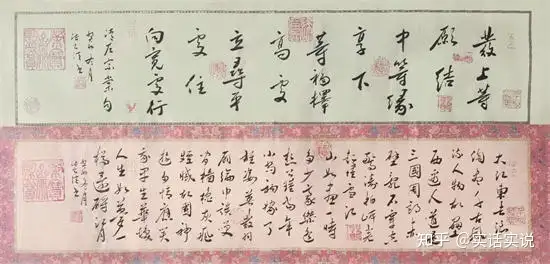 發上等
願結
中等緣
享下
等福擇
高處
立尋平
處住
向寬處行
清左宗棠句
癸卯冬月
大江東去浪
淘盡千古風
流人物故壘
西邊人道是
三國周郎赤
壁亂石穿空
驚濤拍岸卷
起千堆雪江
山如畫一時
多少豪傑遙
想公瑾當年
小喬初嫁了
雄姿英發羽
扇綸巾談笑
間檣櫓灰飛
煙滅故國神
遊多情應笑
我早生華髮
人生如夢一
樽還酹江月
癸卯冬月
知乎 @实话实说